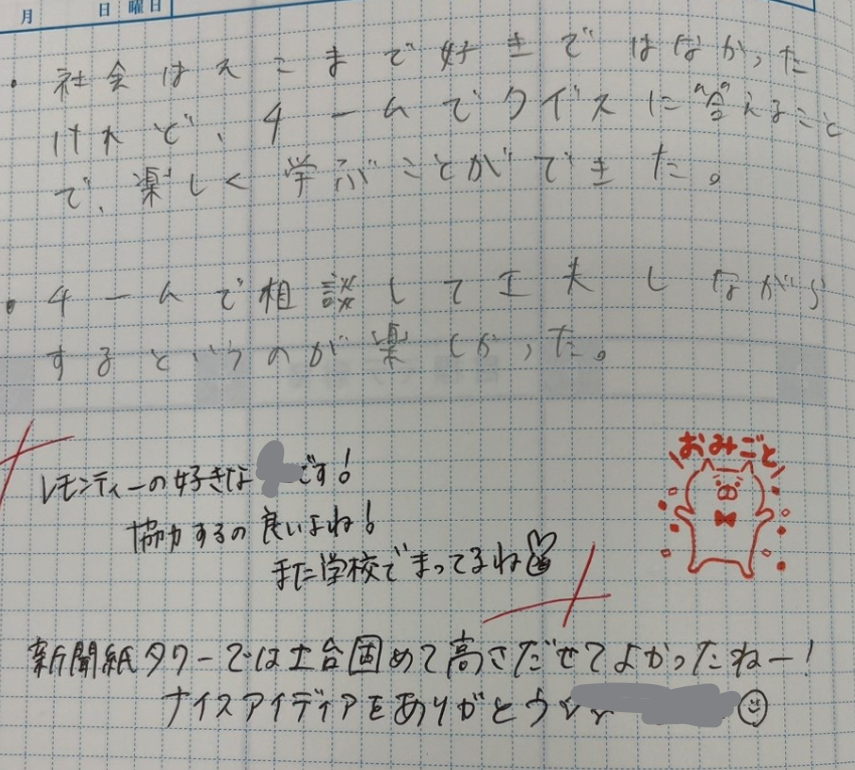 月 日 曜日
・社会はそこまで好きではなかった
けれど、チームでクイズに答えること
で、楽しく学ぶことができた。
・チームで相談して工夫しながら
するというのが楽しかった。
おみごと
レモンティーの好きな です!
協力するの良いよね!
また学校でまってるね
新聞紙タワーでは土台固めて高さだせてよかったねー!
ナイスアイディアをありがとう